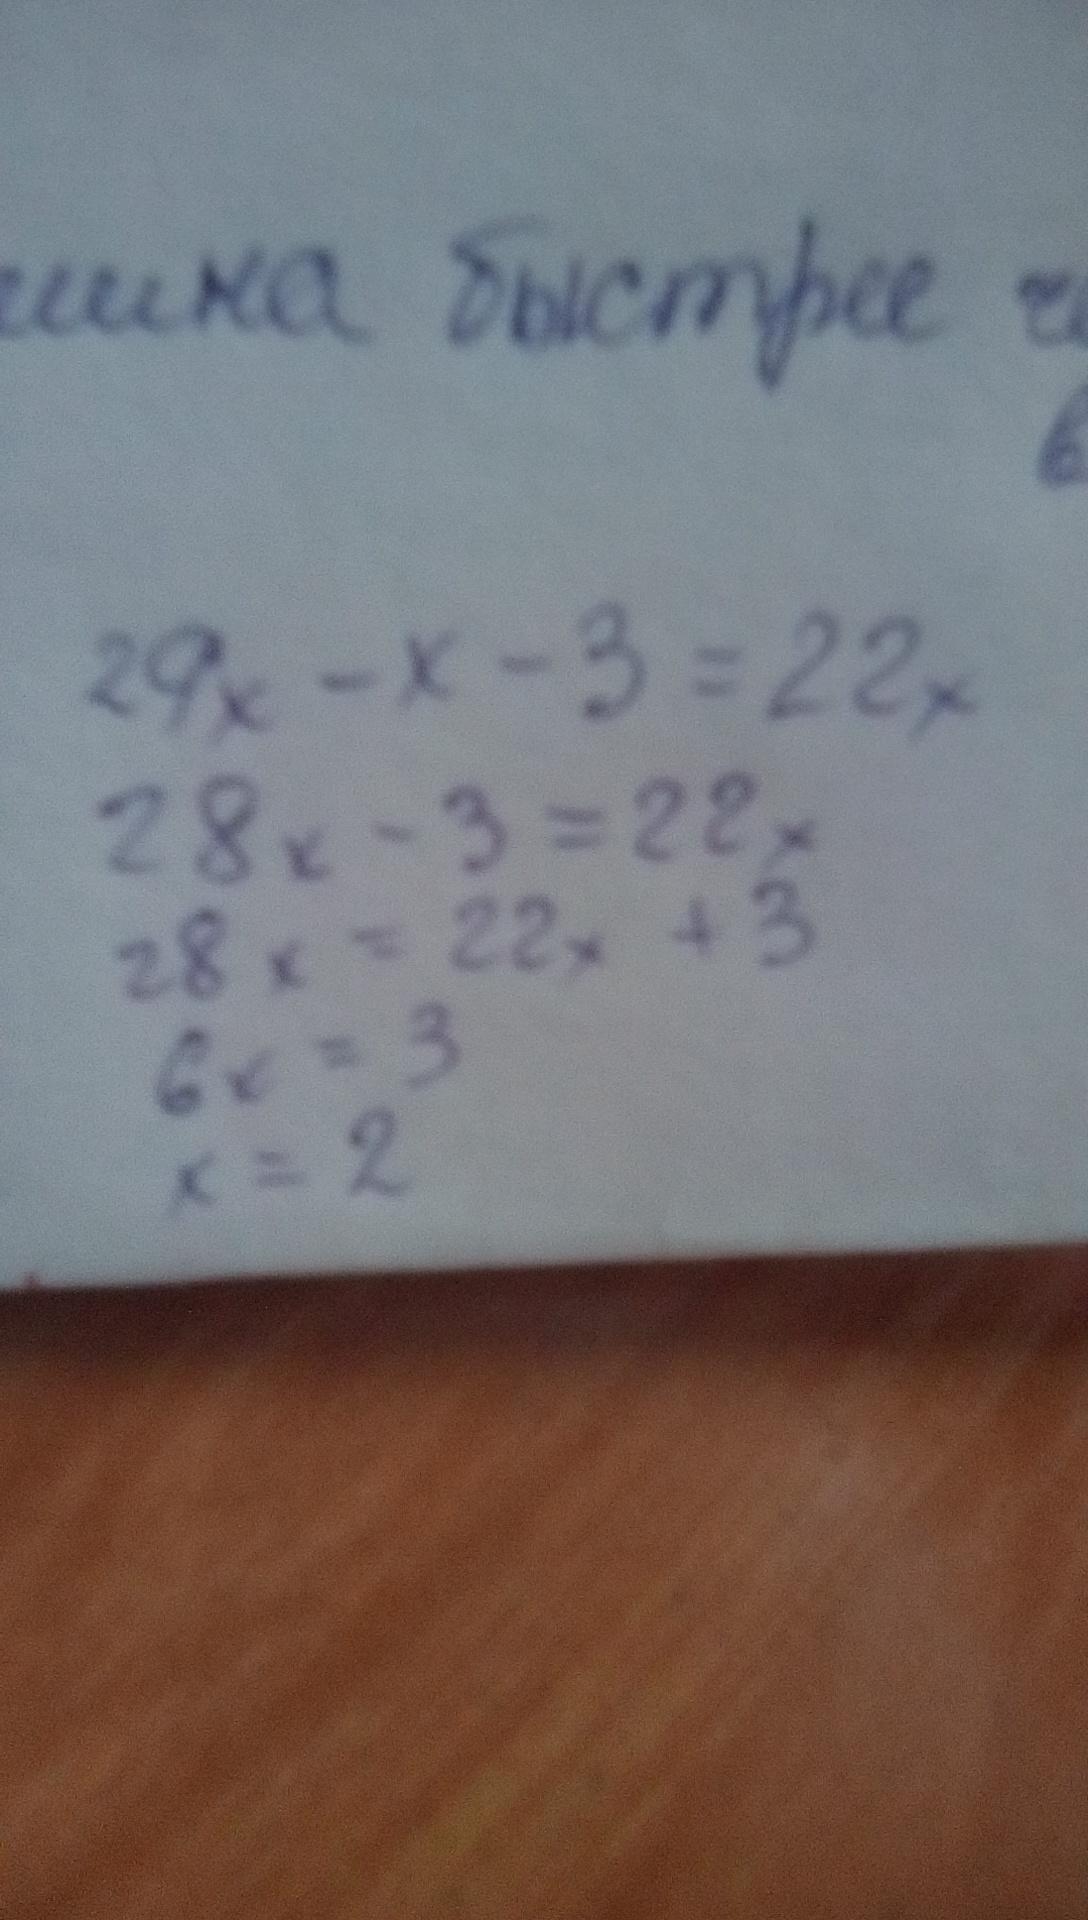 быстрее
29x - x - 3 = 22x
28x - 3 = 22x
28x = 22x + 3
6x = 3
x = 2